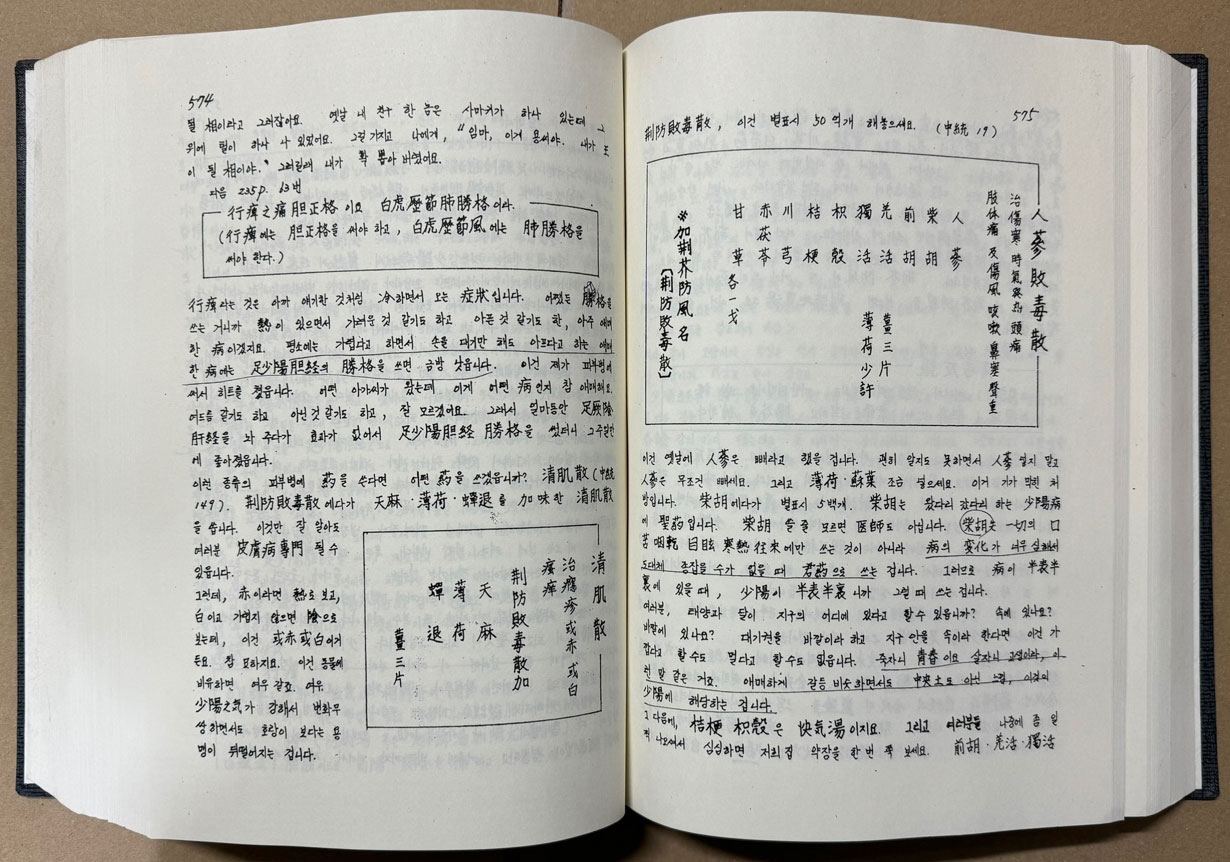 574
될 相이라고 그러잖아요. 옛날 내 친구 한 놈은 사마귀가 하나 있는데 그
위에 털이 하나 나 있었어요. 그걸 가지고 나에게, "임마, 이게 용써야. 내가 또
이 될 相이야." 그러길래 내가 확 뽑아 버렸어요.
다음 235p. 63번
行痺之痛 胆正格 이요 白虎歷節 肺勝格이다.
(行痺에는 胆正格을 써야 하고, 白虎歷節風에는 肺勝格을
써야 한다.)
行痺라는 것은 아까 얘기한 것처럼 冷하면서 오는 症狀입니다. 어쨌든 勝格을
쓰는 거니까 熱이 있으면서 가려운 것 같기도 하고, 아픈 것 같기도 한, 아주 애매
한 病이겠지요. 평소에는 가렵다고 하면서 손을 대기만 해도 아프다고 하는 애매
한 病에는 足少陽胆経의 勝格을 쓰면 금방 낫습니다. 이건 제가 피부병에
써서 히트를 쳤읍니다. 어떤 아가씨가 왔는데 이게 어떤 病인지 참 애매해요.
여드름 같기도 하고 아닌 것 같기도 하고, 잘 모르겠어요. 그래서 얼마동안 足厥陰
肝経을 놔 주다가 효과가 없어서 足少陽胆経 勝格을 썼더니 그 주일만
에 좋아졌읍니다.
이런 종류의 피부병에 药을 쓴다면 어떤 药을 쓰겠읍니까? 清肌散 (中統
149). 荆防敗毒散에다가 天麻·薄荷·蟬退를 加味한 清肌散
을 씁니다. 이것만 잘 알아도
여러분 皮膚病專門 될 수
있읍니다.
그런데, 赤이라면 熱로 보고,
白이고 가렵지 않으면 陰으로
보는데, 이건 或赤或白이거
든요. 참 묘하지요. 이건 동물에
비유하면 여우 같죠. 여우
少陽之気가 강해서 변화무
쌍하면서도 호랑이 보다는 용
맹이 뒤떨어지는 겁니다.
清肌散
治癮疹或赤或白
瘙痒
荆防敗毒散加
天麻
薄荷
蟬退
薑三片
575
荆防敗毒散, 이건 별표시 50억개 해놓으세요. (中統 19)
人蔘敗毒散
治傷寒時氣發熱頭痛
肢体痛及傷風咳嗽鼻塞聲重
人蔘
柴胡
前胡
羌活
獨活
枳殼
桔梗
川芎
赤茯苓
甘草
各一戈
薑三片
薄荷少許
※加荆芥防風名
[荆防敗毒散]
이건 옛날에 人蔘은 빼라고 했을 겁니다. 괜히 알지도 못하면서 人蔘 넣지 말고
人蔘은 무조건 빼세요. 그리고 薄荷·蘇葉 조금 넣으세요. 이거 기가 막힌 처
방입니다. 柴胡에다가 별표시 5백개. 柴胡는 왔다리 갔다리 하는 少陽病
에 聖药입니다. 柴胡 쓸 줄 모르면 医師도 아닙니다. 柴胡는 一切의 口
苦 咽乾 目眩 寒熱往來에만 쓰는 것이 아니라 病의 変化가 너무 심해서
도대체 종잡을 수가 없을 때 君药으로 쓰는 겁니다. 그러므로 病이 半表半
裏에 있을 때, 少陽이 半表半裏니까 그럴 때 쓰는 겁니다.
여러분, 태양과 달이 지구의 어디에 있다고 할 수 있읍니까? 속에 있나요?
바깥에 있나요? 대기권을 바깥이라 하고 지구 안을 속이라 한다면 이건 가
깝다고 할 수도 멀다고 할 수도 없읍니다. 죽자니 青春이요 살자니 고생이라, 이
런 말 같은 거죠. 애매하게 갈등 비슷하면서도 中央土도 아닌 느낌, 이것이
少陽에 해당하는 겁니다.
그 다음에, 桔梗 枳殼은 快気湯이지요. 그리고 여러분들 나중에 좀 일
찍 나오셔서 심심하면 저희 집 약장을 한 번 쭉 보세요. 前胡·羌活·獨活